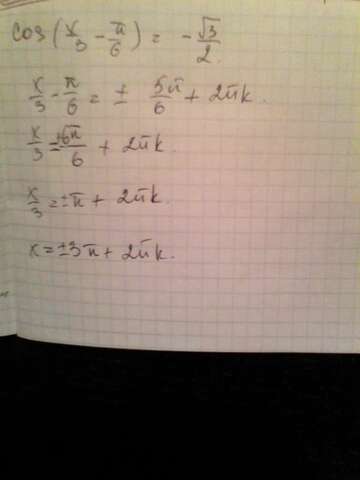 cos(x/3 - π/6) = -√3/2.
x/3 - π/6 = ± 5π/6 + 2πk.
x/3 = ±6π/6 + 2πk.
x/3 = ±π + 2πk.
x = ±3π + 2πk.